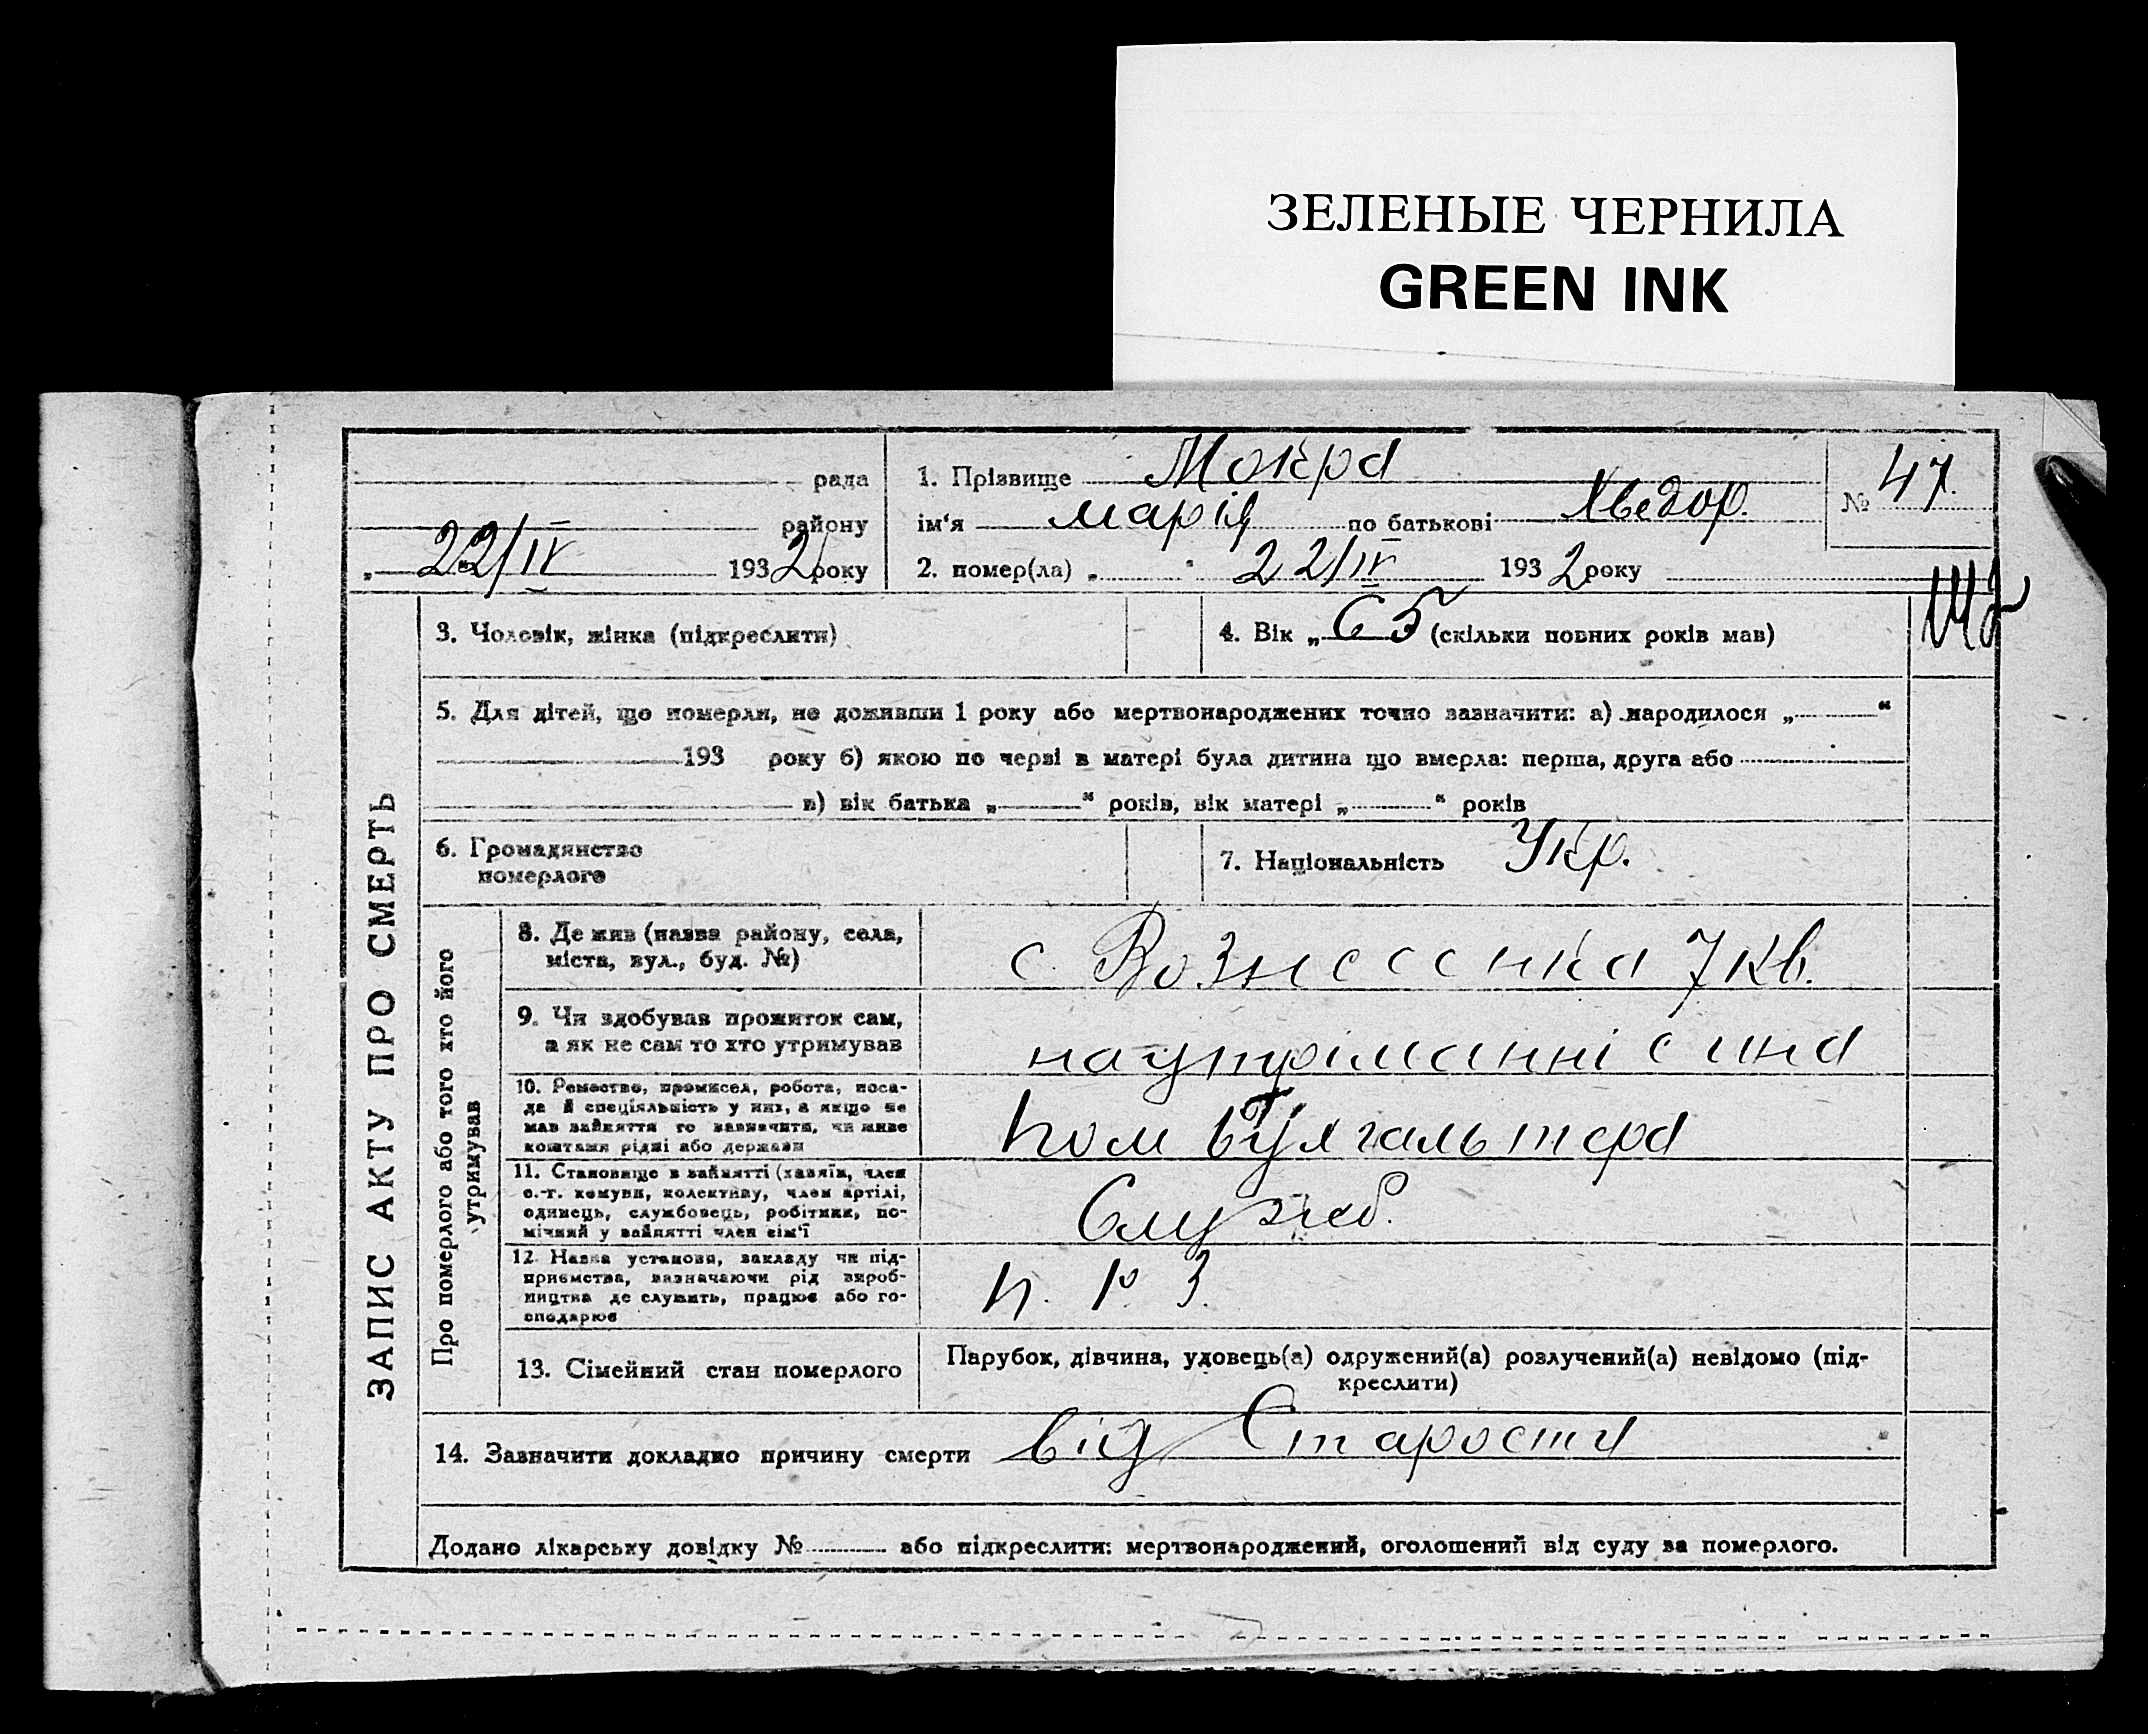 ЗЕЛЕНЫЕ ЧЕРНИЛА
GREEN INK
рада
району
„ 22/IV 1932 року
1. Прізвище Мокра
ім‘я марія по батькові Хведор.
2. помер(ла) „ “ 22/IV 1932 року
№ 47.
ЗАПИС АКТУ ПРО СМЕРТЬ
3. Чоловік, жінка (підкреслити)
4. Вік „ 65 (скільки повних років мав)
5. Для дітей, що померли, не доживши 1 року або мертвонароджених точно зазначити: а) народилося „ “
193 року б) якою по черзі в матері була дитина що вмерла: перша, друга або
в) вік батька „ “ років, вік матері „ “ років
6. Громадянство
померлого
7. Національність Укр.
Про померлого або того хто його
утримував
8. Де жив (назва району, села,
міста, вул., буд. №)
с. Вознесенка 7 кв.
9. Чи здобував прожиток сам,
а як не сам то хто утримував
на утріманні сина
10. Ремество, промисел, робота, поса-
да й спеціяльність у них, а якщо не
мав зайняття то зазначити, чи живе
коштами рідні або держави
пом бухгальтера
11. Становище в зайнятті (хазяїн, член
с.-г. комуни, колективу, член артілі,
одинець, службовець, робітник, по-
мічний у зайнятті член сім‘ї
Служб.
12. Назва установи, закладу чи під-
приємства, зазначаючи рід вироб-
ництва де служить, працює або го-
сподарює
П. Р. З.
13. Сімейний стан померлого
Парубок, дівчина, удовець(а) одружений(а) розлучений(а) невідомо (під-
креслити)
14. Зазначити докладно причину смерти від Старости
Додано лікарську довідку № або підкреслити: мертвонароджений, оголошений від суду за померлого.